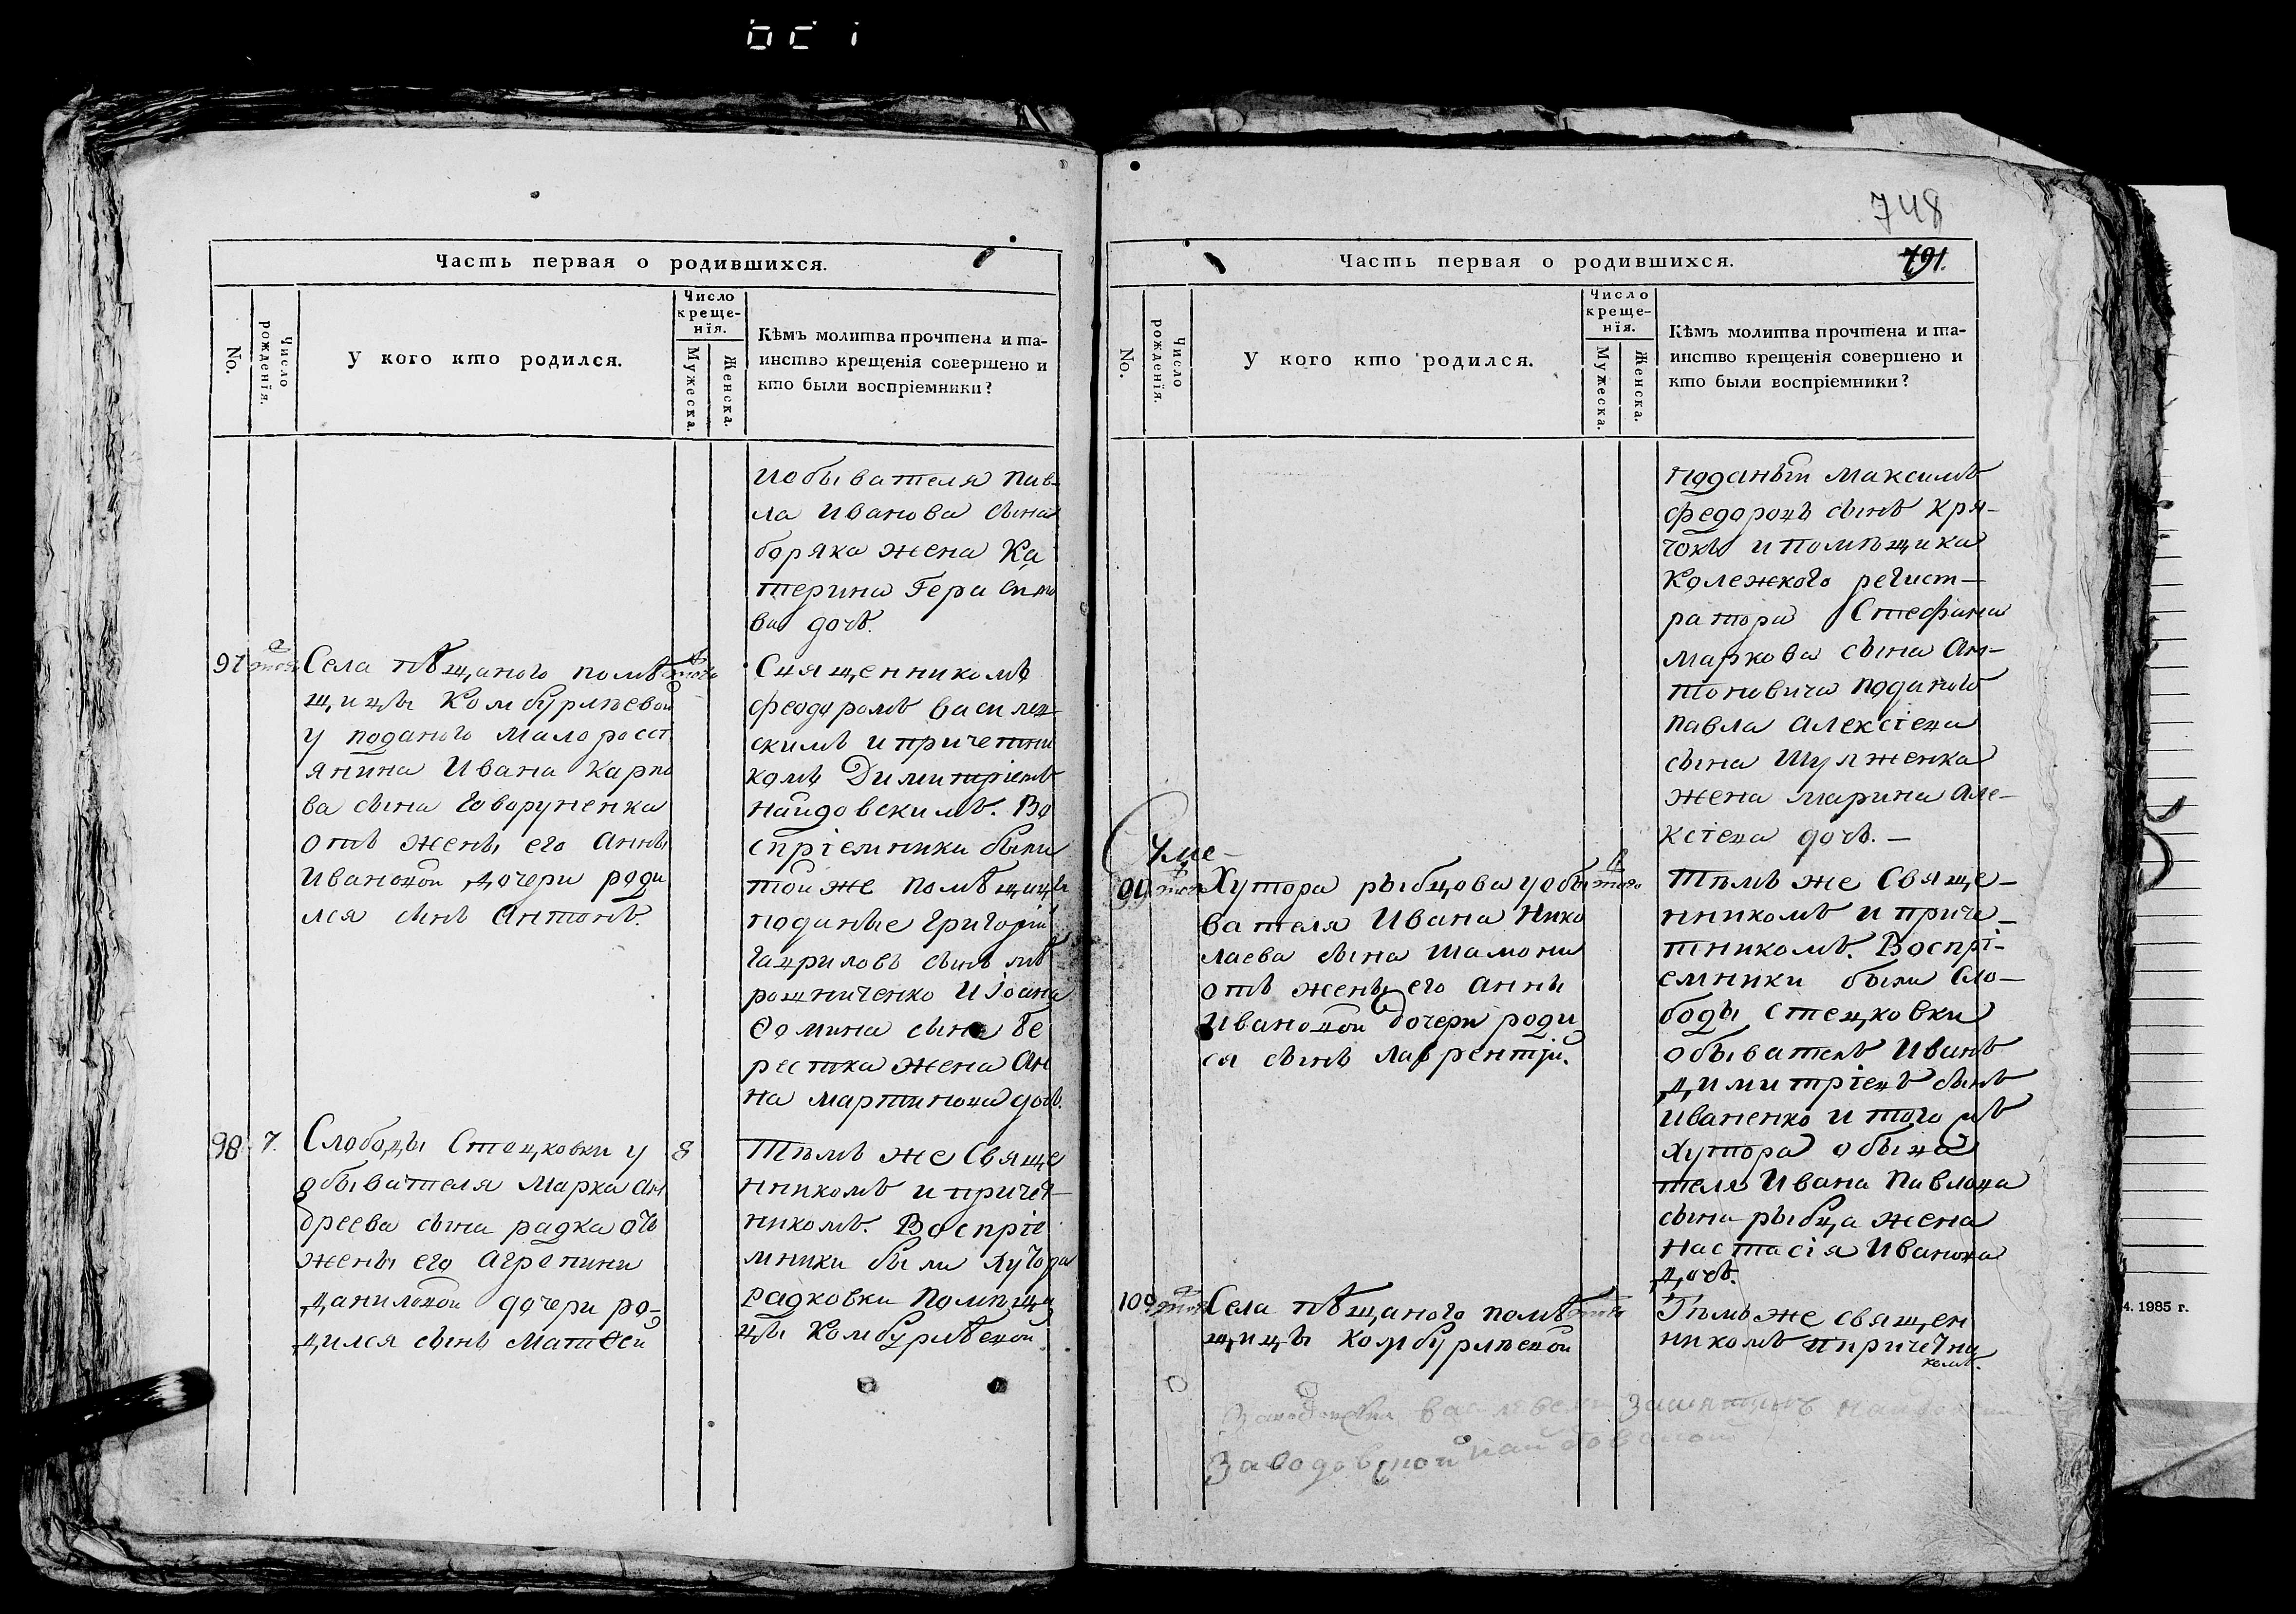 Часть первая о родившихся.
No.
Число рожденія.
У кого кто родился.
Число
креще-
нія.
Мужеска.
Женска.
Кѣмъ молитва прочтена и та-
инство крещенія совершено и
кто были воспріемники?
и обывателя Пав-
ла Иванова сына
боряка жена Ка
терина Гераси
ва дочь.
97
Села пѣщаного помѣ
щицы Комбурлѣевой
у поданого малоросс
янина Ивана Карпо
ва сына Говоруненка
отъ жены его Анны
Ивановой дочери роди
лся сынъ Антонъ.
Священникомъ
феодоромъ Василев
скимъ и причетни
комъ Димитріемъ
найдовскимъ. Во
спріемники были
той же помѣщицы
поданые Григорій
Гавриловъ сынъ
рошниченко и Іоана
Ѳомина сына бе
рестка жена Ан
на Мартинова дочь.
98
7.
Слободы Стецковки у
обывателя Марка Ан
дреева сына радка отъ
жены его Агрепини
Даниловой дочери ро-
дился сынъ Матѳей
8
Тѣмъ же Свяще
нникомъ и причет-
никомъ. Воспріе
мники были хутора
радковки помѣщи
цы Комбурлѣевой
748
Часть первая о родившихся.
791.
No.
Число рожденія.
У кого кто родился.
Число
креще-
нія.
Мужеска.
Женска.
Кѣмъ молитва прочтена и та-
инство крещенія совершено и
кто были воспріемники?
поданый Максимъ
федоровъ сынъ Кря-
чокъ и помѣщика
Колежкого регист-
ратора Стефана
Маркова сына Ан-
тоновича поданого
Павла Алексіева
сына Шулженка
жена Марина Але-
ксіева дочь.
99
Хутора рыбцова у обы
вателя Ивана Нико
лаева сына Шамони
отъ жены его Анны
Ивановой дочери роди
ся сынъ Лаврентій.
того
Тѣмъ же Свяще-
нникомъ и приче-
тникомъ. Воспрі-
емники были Сло-
боды Стецковки
обыватель Иванъ
Димитріевъ сынъ
Иваненко и того жъ
хутора обыва
теля Ивана Павлова
сына рыбца жена
Настасія Иванова
дочь.
100
Села пѣщаного помѣ
щицы Комбурлѣевой
Тѣмъ же священ
никомъ и причетни
комъ.
Заводовской
4. 1985 г.